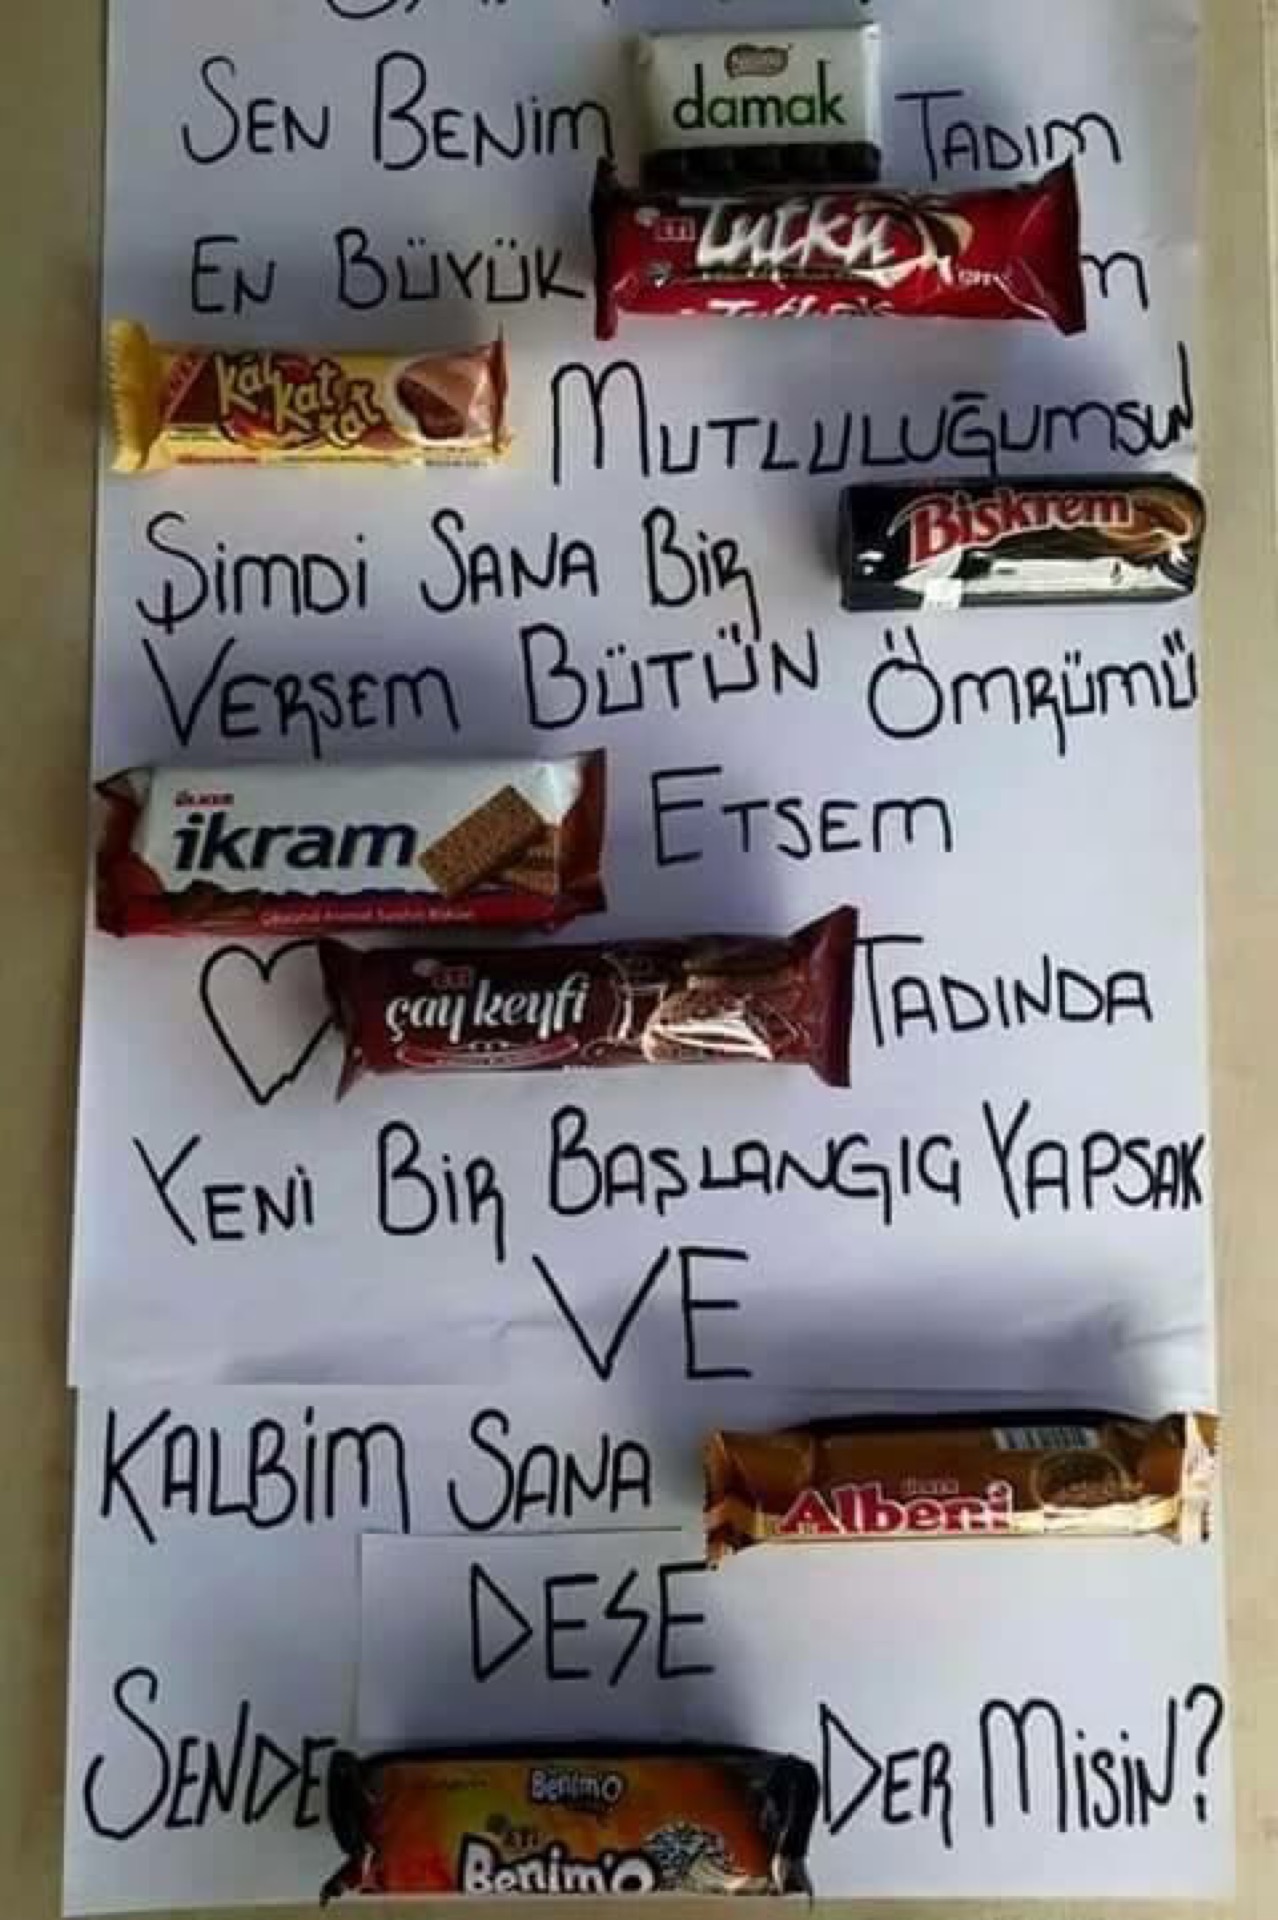 SEN BENİM Nestlé damak TADIM
EN BÜYÜK ETİ Tutku M
Kat Kat Tat MUTLULUĞUMSUN
ŞİMDİ SANA BİR Biskrem
VERSEM BÜTÜN ÖMRÜMÜ
ÜLKER ikram ETSEM
ETİ çay keyfi TADINDA
YENİ BİR BAŞLANGIG YAPSAK
VE
KALBİM SANA ÜLKER Albeni
DESE
SENDE Benim'O DER MİSİN?
ETİ Benim'O